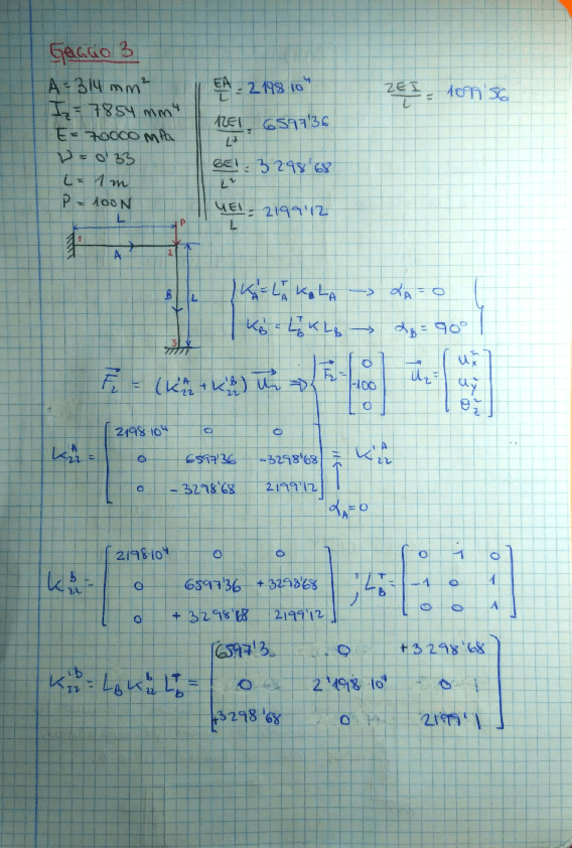 Ejercicio 3
A = 314 mm²
I_z = 7854 mm⁴
E = 70000 MPa
ν = 0'33
L = 1 m
P = 100 N
EA/L = 2198 10⁴
12EI/L³ = 6597'36
6EI/L² = 3298'68
4EI/L = 2199'12
2EI/L = 1099'56
L P
1 A 2
B L
3
K'_A = L_A^T K_A L_A → α_A = 0
K'_B = L_B^T K L_B → α_B = 90°
F₂ = (K'₂₂^A + K'₂₂^B) U₂ ⇒ F₂ = [0 -100 0] U₂ = [u_x² u_y² θ_z²]
K₂₂^A = [2198 10⁴ 0 0
0 6597'36 -3298'68
0 -3298'68 2199'12] = K'₂₂^A
α_A = 0
K₂₂^B = [2198 10⁴ 0 0
0 6597'36 +3298'68
0 +3298'68 2199'12] ; L_B^T = [0 1 0
-1 0 1
0 0 1]
K'₂₂^B = L_B K₂₂^B L_B^T = [6597'3 0 +3298'68
0 2'198 10⁴ 0
+3298'68 0 2199'1]